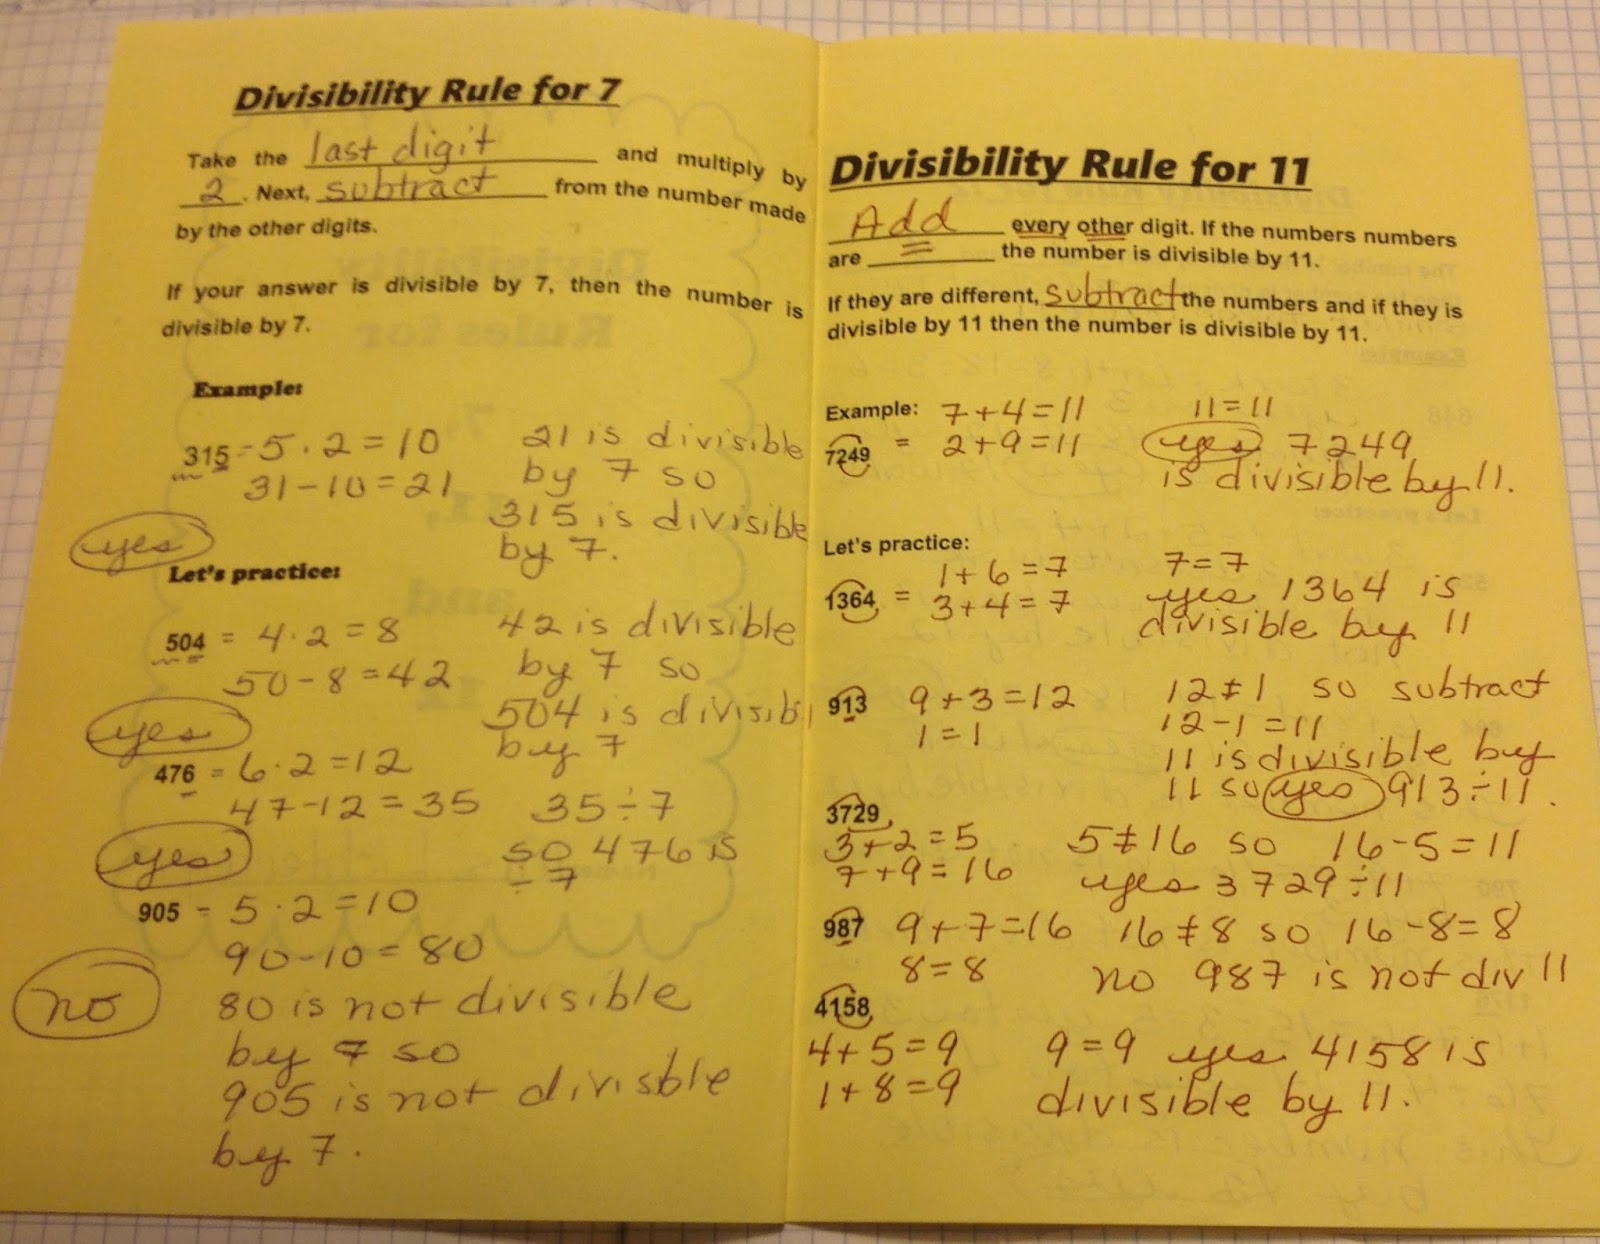 Divisibility Rule for 7
Take the last digit and multiply by
2. Next, subtract from the number made
by the other digits.
If your answer is divisible by 7, then the number is
divisible by 7.
Example:
315 = 5 · 2 = 10
31 - 10 = 21
21 is divisible
by 7 so
315 is divisible
by 7.
yes
Let's practice:
504 = 4 · 2 = 8
50 - 8 = 42
42 is divisible
by 7 so
504 is divisib
by 7
yes
476 = 6 · 2 = 12
47 - 12 = 35
35 ÷ 7
so 476 is
÷ 7
yes
905 - 5 · 2 = 10
90 - 10 = 80
no
80 is not divisible
by 7 so
905 is not divisble
by 7.
Divisibility Rule for 11
Add every other digit. If the numbers numbers
are = the number is divisible by 11.
If they are different, subtract the numbers and if they is
divisible by 11 then the number is divisible by 11.
Example: 7 + 4 = 11
7249 = 2 + 9 = 11
11 = 11
yes 7249
is divisible by 11.
Let's practice:
1 + 6 = 7
1364 = 3 + 4 = 7
7 = 7
yes 1364 is
divisible by 11
913 9 + 3 = 12
1 = 1
12 ≠ 1 so subtract
12 - 1 = 11
11 is divisible by
11 so yes 913 ÷ 11.
3729
3 + 2 = 5
7 + 9 = 16
5 ≠ 16 so 16 - 5 = 11
yes 3729 ÷ 11
987 9 + 7 = 16
8 = 8
16 ≠ 8 so 16 - 8 = 8
no 987 is not div 11
4158
4 + 5 = 9
1 + 8 = 9
9 = 9 yes 4158 is
divisible by 11.